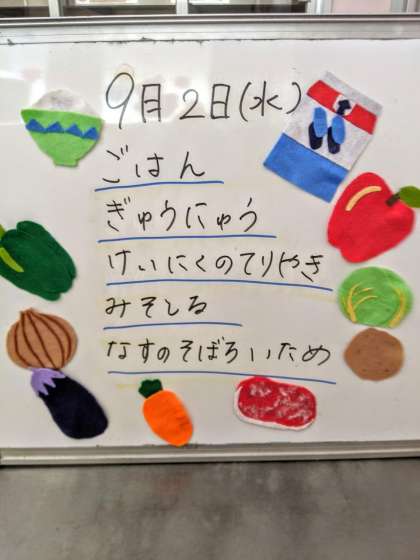 9日2日(水)
ごはん
ぎゅうにゅう
けいにくのてりやき
みそしる
なすのそぼろいため